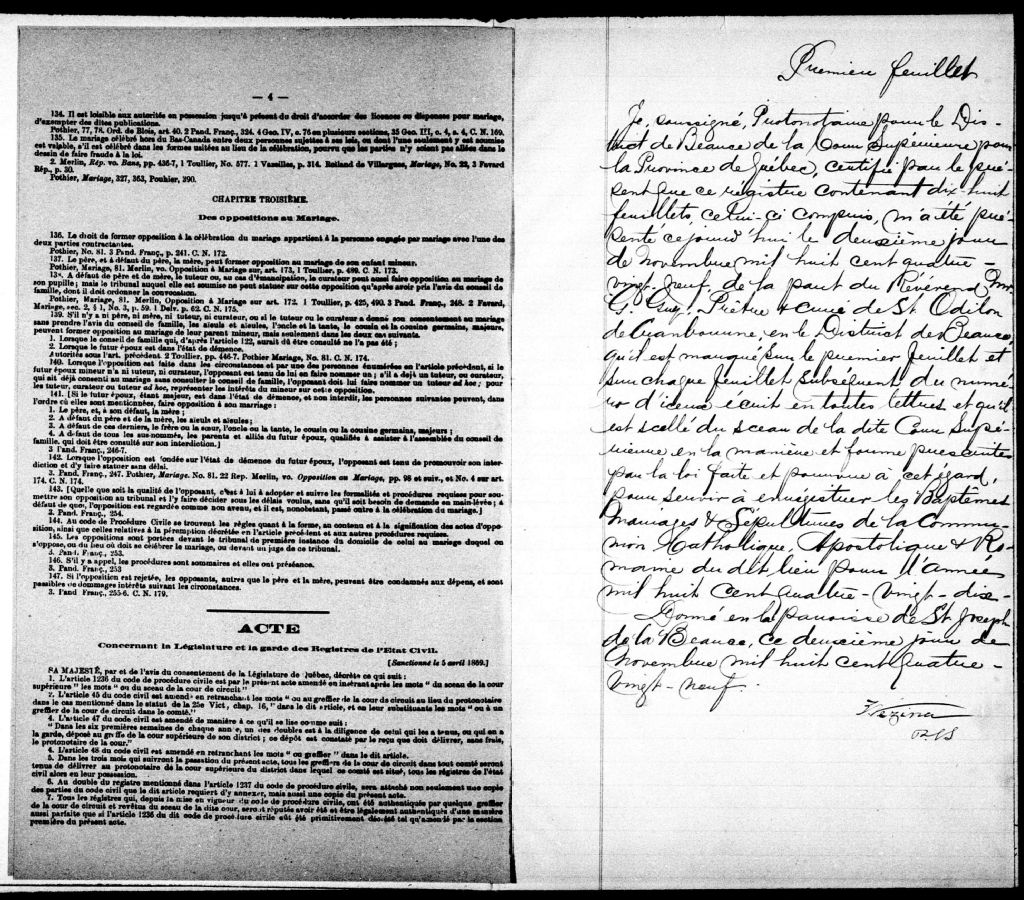 — 4 —
134. Il est loisible aux autorités en possession jusqu'à présent du droit d'accorder des licences ou dispenses pour mariage,
d'exempter des dites publications.
Pothier, 77, 78. Ord. de Blois, art. 40. 2 Pand. Franç., 324. 4 Geo. IV, c. 76 en plusieurs sections, 35 Geo. III, c. 4, s. 4, C. N. 169.
135. Le mariage célébré hors du Bas-Canada entre deux personnes sujettes à ses lois, ou dont l'une seulement y est soumise
est valable, s'il est célébré dans les formes usitées au lieu de la célébration, pourvu que les parties n'y soient pas allées dans le
dessin de faire fraude à la loi.
2. Merlin, Rép. vo. Bans, pp. 436-7, 1 Toullier, No. 577. 1 Vazeilles, p. 314. Rolland de Villargues, Mariage, No. 22, 3 Favard
Rép., p. 30.
Pothier, Mariage, 327, 363, Pouhier, 390.
CHAPITRE TROISIÈME.
Des oppositions au Mariage.
136. Le droit de former opposition à la célébration du mariage appartient à la personne engagée par mariage avec l'une des
deux parties contractantes.
Pothier, No. 81. 3 Pand. Franç., p. 241. C. N. 172.
137. Le père, et à défaut du père, la mère, peut former opposition au mariage de son enfant mineur.
Pothier, Mariage, 81. Merlin, vo. Opposition à Mariage sur, art. 173, 1 Toullier, p. 489. C. N. 173.
138. A défaut de père et de mère, le tuteur ou, au cas d'émancipation, le curateur peut aussi faire opposition au mariage de
son pupille; mais le tribunal auquel elle est soumise ne peut statuer sur cette opposition qu'après avoir pris l'avis du conseil de
famille, dont il doit ordonner la convocation.
Pothier, Mariage, 81. Merlin, Opposition à Mariage sur art. 172. 1 Toullier, p. 425, 490. 3 Pand. Franç., 248. 2 Favard,
Mariage, sec. 2, § 1, No. 3, p. 59. 1 Delv. p. 62. C. N. 175.
139. S'il n'y a ni père, ni mère, ni tuteur, ni curateur, ou si le tuteur ou le curateur a donné son consentement au mariage
sans prendre l'avis du conseil de famille, les aïeuls et aïeules, l'oncle et la tante, le cousin et la cousine germains, majeurs,
peuvent former opposition au mariage de leur parent mineur, mais seulement dans les deux cas suivants.
1. Lorsque le conseil de famille qui, d'après l'article 122, aurait dû être consulté ne l'a pas été;
2. Lorsque le futur époux est dans l'état de démence.
Autorités sous l'art. précédent. 2 Toullier, pp. 446-7. Pothier Mariage, No. 81. C. N. 174.
140. Lorsque l'opposition est faite dans les circonstances et par une des personnes énumérées en l'article précédent, si le
futur époux mineur n'a ni tuteur, ni curateur, l'opposant est tenu de lui en faire nommer un; s'il a déjà un tuteur, ou curateur,
qui ait déjà consenti au mariage sans consulter le conseil de famille, l'opposant doit lui faire nommer un tuteur ad hoc; pour
les tuteur, curateur ou tuteur ad hoc, représenter les intérêts du mineur sur cette opposition.
141. [Si le futur époux, étant majeur, est dans l'état de démence, et non interdit, les personnes suivantes peuvent, dans
l'ordre où elles sont mentionnées, faire opposition à son mariage:
1. Le père, et, à son défaut, la mère;
2. A défaut du père et de la mère, les aïeuls et aïeules;
3. A défaut de ces derniers, le frère ou la sœur, l'oncle ou la tante, le cousin ou la cousine germains, majeurs;
4. A défaut de tous les sus-nommés, les parents et alliés du futur époux, qualifiés à assister à l'assemblée du conseil de
famille, qui doit être consulté sur son interdiction.]
3 Pand. Franç., 246-7.
142. Lorsque l'opposition est fondée sur l'état de démence du futur époux, l'opposant est tenu de promouvoir son inter-
diction et d'y faire statuer sans délai.
3. Pand. Franç., 247. Pothier, Mariage. No. 81. 22 Rep. Merlin, vo. Opposition au Mariage, pp. 98 et suiv., et No. 4 sur art.
174. C. N. 174.
143. [Quelque que soit la qualité de l'opposant, c'est à lui à adopter et suivre les formalités et procédures requises pour sou-
mettre son opposition au tribunal et l'y faire décider sous les délais voulus, sans qu'il soit besoin de demande en main-levée; à
défaut de quoi, l'opposition est regardée comme non avenue, et il est, nonobstant, passé outre à la célébration du mariage.]
3. Pand. Franç., 254.
144. Au code de Procédure Civile se trouvent les règles quant à la forme, au contenu et à la signification des actes d'oppo-
sition, ainsi que celles relatives à la péremption décrétée en l'article précédent et aux autres procédures requises.
145. Les oppositions sont portées devant le tribunal de première instance du domicile de celui au mariage duquel on
s'oppose, ou du lieu où doit se célébrer le mariage, ou devant un juge de ce tribunal.
3. Pand. Franç., 253.
146. S'il y a appel, les procédures sont sommaires et elles ont préséance.
3. Pand. Franç., 253
147. Si l'opposition est rejetée, les opposants, autres que le père et la mère, peuvent être condamnés aux dépens, et sont
passibles de dommages intérêts suivant les circonstances.
3. Pand Franç., 255-6. C. N. 179.
ACTE
Concernant la Législature et la garde des Registres de l'Etat Civil.
[Sanctionné le 5 avril 1869.]
SA MAJESTÉ, par et de l'avis du consentement de la Législature de Québec, décrète ce qui suit:
1. L'article 1236 du code de procédure civile est par le présent acte amendé en insérant après les mots "du sceau de la cour
supérieure" les mots "ou du sceau de la cour de circuit"
2. L'article 45 du code civil est amendé en retranchant les mots "ou au greffier de la cour de circuit au lieu du protonotaire
dans le cas mentionné dans le statut de la 25e Vict, chap. 16," dans le dit article, et en leur substituant les mots "ou à un
greffier de la cour de circuit dans le comté."
4. L'article 47 du code civil est amendé de manière à ce qu'il se lise comme suit:
"Dans les six premières semaines de chaque année, un des doubles est à la diligence de celui qui les a tenus, ou qui en a
la garde, déposé au greffe de la cour supérieure de son district; ce dépôt est constaté par le reçu que doit délivrer, sans frais,
le protonotaire de la cour."
4. L'article 48 du code civil est amendé en retranchant les mots "ou greffier" dans le dit article.
5. Dans les trois mois qui suivront la passation du présent acte, tous les greffiers de la cour de circuit dans tout comté seront
tenus de délivrer au protonotaire de la cour supérieure du district dans lequel ce comté est situé, tous les régistres de l'état
civil alors en leur possession.
6. Au double du registre mentionné dans l'article 1237 du code de procédure civile, sera attaché non seulement une copie
des parties du code civile que le dit article requiert d'y annexer, mais aussi une copie du présent acte.
7. Tous les régistres qui, depuis la mise en vigueur du code de procédure civile, ont été authentiqués par quelque greffier
de la cour de circuit et revêtus du sceau de la dite cour, seront réputés avoir été et être légalement authentiqués d'une manière
aussi parfaite que si l'article 1236 du dit code de procédure civile eût été primitivement décrété tel qu'amendé par la section
première du présent acte.
Premier feuillet
Je, soussigné, Protonotaire pour le Dis-
trict de Beauce de la Cour Supérieure pour
la Province de Québec, certifie par le pré-
sent que ce registre contenant dix huit
feuillets, celui-ci compris, m'a été pré-
senté ce jourd'hui le deuxième jour
de novembre mil huit cent quatre-
vingt-neuf, de la part du Révérend Mr.
G. Guy, Prêtre & curé de St. Odilon
de Cranbourne, en le District de Beauce,
qu'il est marqué sur le premier feuillet et
sur chaque feuillet subséquent du numé-
ro d'iceux écrit en toutes lettres et qu'il
est scellé du sceau de la dite Cour Supé-
rieure en la manière et forme prescrites
par la loi faite et pourvue à cet égard,
pour servir à enregistrer les Baptêmes
Mariages & Sépultures de la Commu-
nion Catholique, Apostolique & Ro-
maine du dit lieu pour l'Année
mil huit cent quatre-vingt-dix-
Donné en la paroisse de St. Joseph
de la Beauce, ce deuxième jour de
novembre mil huit cent quatre-
vingt-neuf.
Vézina
P.C.S